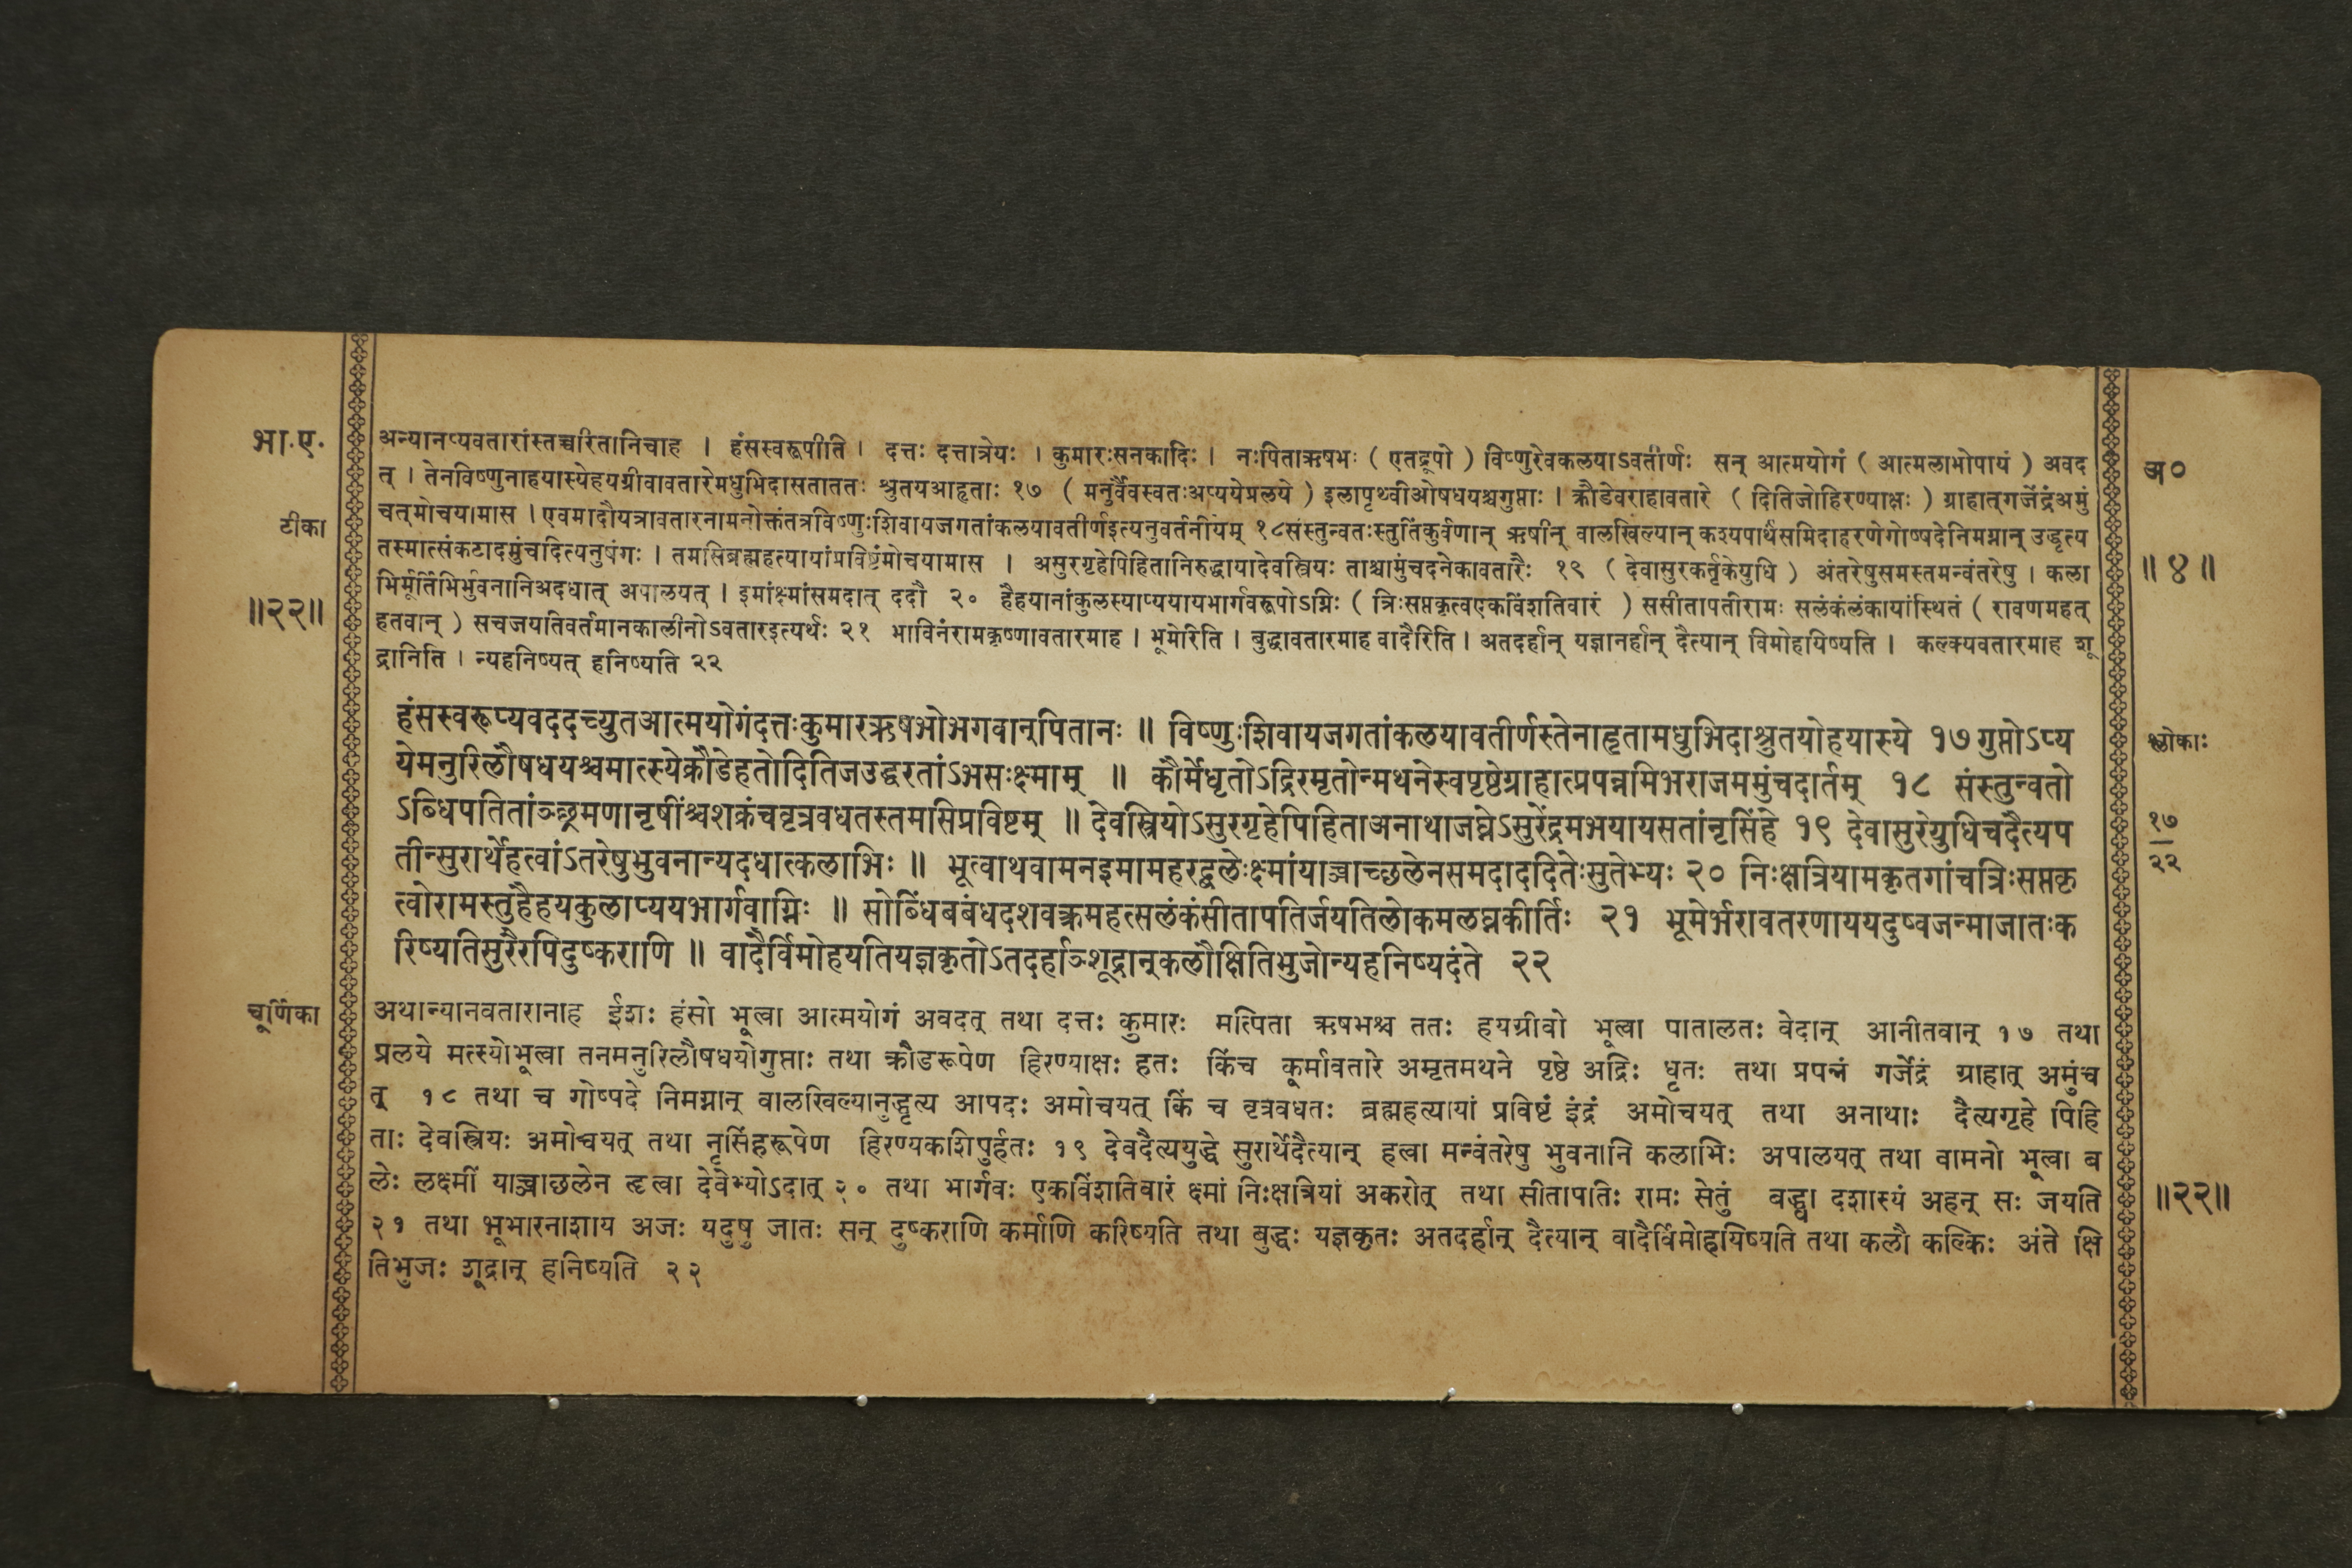 भा.ए.
टीका
॥२२॥
अन्यानप्यवतारांस्तच्चरितानिचाह । हंसस्वरूपीति । दत्तः दत्तात्रेयः । कुमारःसनकादिः । नःपिताऋषभः ( एतद्रूपो ) विष्णुरेवकलयाऽवतीर्णः सन् आत्मयोगं ( आत्मलाभोपायं ) अवद
त् । तेनविष्णुनाहयास्येहयग्रीवावतारेमधुभिदासताततः श्रुतयआहृताः १७ ( मनुर्वैवस्वतःअप्ययेप्रलये ) इलापृथ्वीओषधयश्चगुप्ताः । क्रौडेवराहावतारे ( दितिजोहिरण्याक्षः ) ग्राहात्गजेंद्रंअमुं
चत्मोचयामास । एवमादौयत्रावतारनामनोक्तंतत्रविष्णुःशिवायजगतांकलयावतीर्णइत्यनुवर्तनीयम् १८संस्तुन्वतःस्तुतिंकुर्वणान् ऋषीन् वालखिल्यान् कश्यपार्थंसमिदाहरणेगोष्पदेनिमग्नान् उद्धृत्य
तस्मात्संकटादमुंचदित्यनुषंगः । तमसिब्रह्महत्यायांप्रविष्टंमोचयामास । असुरगृहेपिहितानिरुद्धायादेवस्त्रियः ताश्चामुंचदनेकावतारैः १९ ( देवासुरकर्तृकेयुधि ) अंतरेषुसमस्तमन्वंतरेषु । कला
भिर्मूर्तिभिर्भुवनानिअदधात् अपालयत् । इमांक्ष्मांसमदात् ददौ २० हैहयानांकुलस्याप्ययायभार्गवरूपोऽग्निः ( त्रिःसप्तकृत्वएकविंशतिवारं ) ससीतापतीरामः सलंकंलंकायांस्थितं ( रावणमहत्
हतवान् ) सचजयतिवर्तमानकालीनोऽवतारइत्यर्थः २१ भाविनंरामकृष्णावतारमाह । भूमेरिति । बुद्धावतारमाह वादैरिति । अतदर्हान् यज्ञानर्हान् दैत्यान् विमोहयिष्यति । कल्क्यवतारमाह शू
द्रानिति । न्यहनिष्यत् हनिष्यति २२
हंसस्वरूप्यवददच्युतआत्मयोगंदत्तःकुमारऋषभोभगवान्पितानः ॥ विष्णुःशिवायजगतांकलयावतीर्णस्तेनाहृतामधुभिदाश्रुतयोहयास्ये १७ गुप्तोऽप्य
येमनुरिलौषधयश्चमात्स्येक्रौडेहतोदितिजउद्धरतांऽभसःक्ष्माम् ॥ कौर्मेधृतोऽद्रिरमृतोन्मथनेस्वपृष्ठेग्राहात्प्रपन्नमिभराजममुंचदार्तम् १८ संस्तुन्वतो
ऽब्धिपतितांञ्छ्रमणानृषींश्चशक्रंचवृत्रवधतस्तमसिप्रविष्टम् ॥ देवस्त्रियोऽसुरगृहेपिहिताअनाथाजघ्नेऽसुरेंद्रमभयायसतांनृसिंहे १९ देवासुरेयुधिचदैत्यप
तीन्सुरार्थेहत्वांऽतरेषुभुवनान्यदधात्कलाभिः ॥ भूत्वाथवामनइमामहरद्बलेःक्ष्मांयाच्ञाच्छलेनसमदाददितेःसुतेभ्यः २० निःक्षत्रियामकृतगांचत्रिःसप्तकृ
त्वोरामस्तुहैहयकुलाप्ययभार्गवाग्निः ॥ सोब्धिंबबंधदशवक्त्रमहत्सलंकंसीतापतिर्जयतिलोकमलघ्नकीर्तिः २१ भूमेर्भरावतरणाययदुष्वजन्माजातःक
रिष्यतिसुरैरपिदुष्कराणि ॥ वादैर्विमोहयतियज्ञकृतोऽतदर्हाञ्शूद्रान्कलौक्षितिभुजोन्यहनिष्यदंते २२
चूर्णिका
अथान्यानवतारानाह ईशः हंसो भूत्वा आत्मयोगं अवदत् तथा दत्तः कुमारः मत्पिता ऋषभश्च ततः हयग्रीवो भूत्वा पातालतः वेदान् आनीतवान् १७ तथा
प्रलये मत्स्योभूत्वा तनमनुरिलौषधयोगुप्ताः तथा क्रौडरूपेण हिरण्याक्षः हतः किंच कूर्मावतारे अमृतमथने पृष्ठे अद्रिः धृतः तथा प्रपन्नं गजेंद्रं ग्राहात् अमुंच
त् १८ तथा च गोष्पदे निमग्नान् वालखिल्यानुद्धृत्य आपदः अमोचयत् किं च वृत्रवधतः ब्रह्महत्यायां प्रविष्टं इंद्रं अमोचयत् तथा अनाथाः दैत्यगृहे पिहि
ताः देवस्त्रियः अमोचयत् तथा नृसिंहरूपेण हिरण्यकशिपुर्हतः १९ देवदैत्ययुद्धे सुरार्थेदैत्यान् हत्वा मन्वंतरेषु भुवनानि कलाभिः अपालयत् तथा वामनो भूत्वा ब
लेः लक्ष्मीं याच्ञाछलेन हृत्वा देवेभ्योऽदात् २० तथा भार्गवः एकविंशतिवारं क्ष्मां निःक्षत्रियां अकरोत् तथा सीतापतिः रामः सेतुं बद्ध्वा दशास्यं अहन् सः जयति
२१ तथा भूभारनाशाय अजः यदुषु जातः सन् दुष्कराणि कर्माणि करिष्यति तथा बुद्धः यज्ञकृतः अतदर्हान् दैत्यान् वादैर्विमोहयिष्यति तथा कलौ कल्किः अंते क्षि
तिभुजः शूद्रान् हनिष्यति २२
अ०
॥४॥
श्लोकाः
१७
२२
॥२२॥